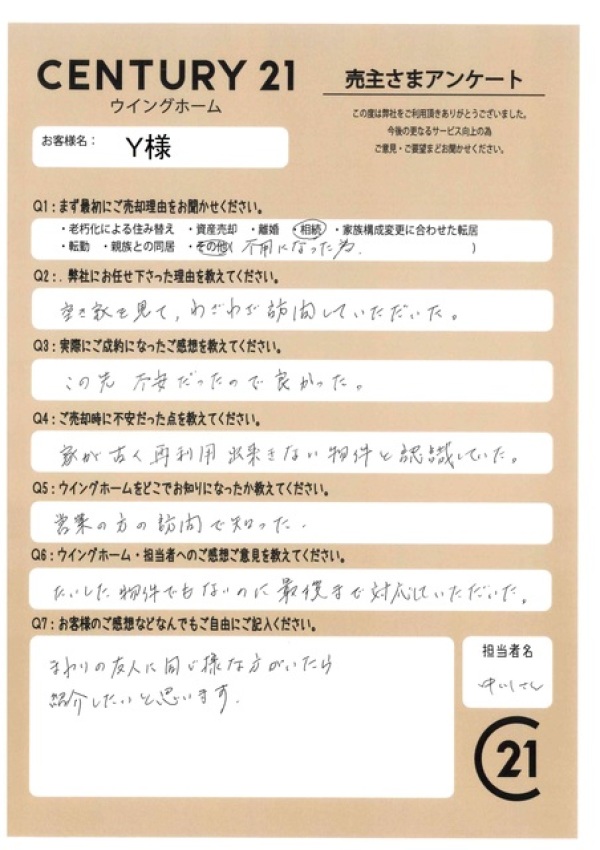 CENTURY 21
ウイングホーム
売主さまアンケート
この度は弊社をご利用頂きありがとうございました。
今後の更なるサービス向上の為
ご意見・ご要望までお聞かせください。
お客様名：
Y様
Q1：まず最初にご売却理由をお聞かせください。
・老朽化による住み替え ・資産売却 ・離婚 ・相続 ・家族構成変更に合わせた転居
・転勤 ・親族との同居 ・その他( 不用になった為. )
Q2：. 弊社にお任せ下さった理由を教えてください。
空き家を見て、わざわざ訪問していただいた。
Q3：実際にご成約になったご感想を教えてください。
この先 不安だったので良かった。
Q4：ご売却時に不安だった点を教えてください。
家が古く再利用出来きない物件と認識していた。
Q5：ウイングホームをどこでお知りになったか教えてください。
営業の方の訪問で知った.
Q6：ウイングホーム・担当者へのご感想ご意見を教えてください。
たいした物件でもないのに最後まで対応していただいた。
Q7：お客様のご感想などなんでもご自由にご記入ください。
まわりの友人に同じ様な方がいたら
紹介したいと思います.
担当者名
さん
21